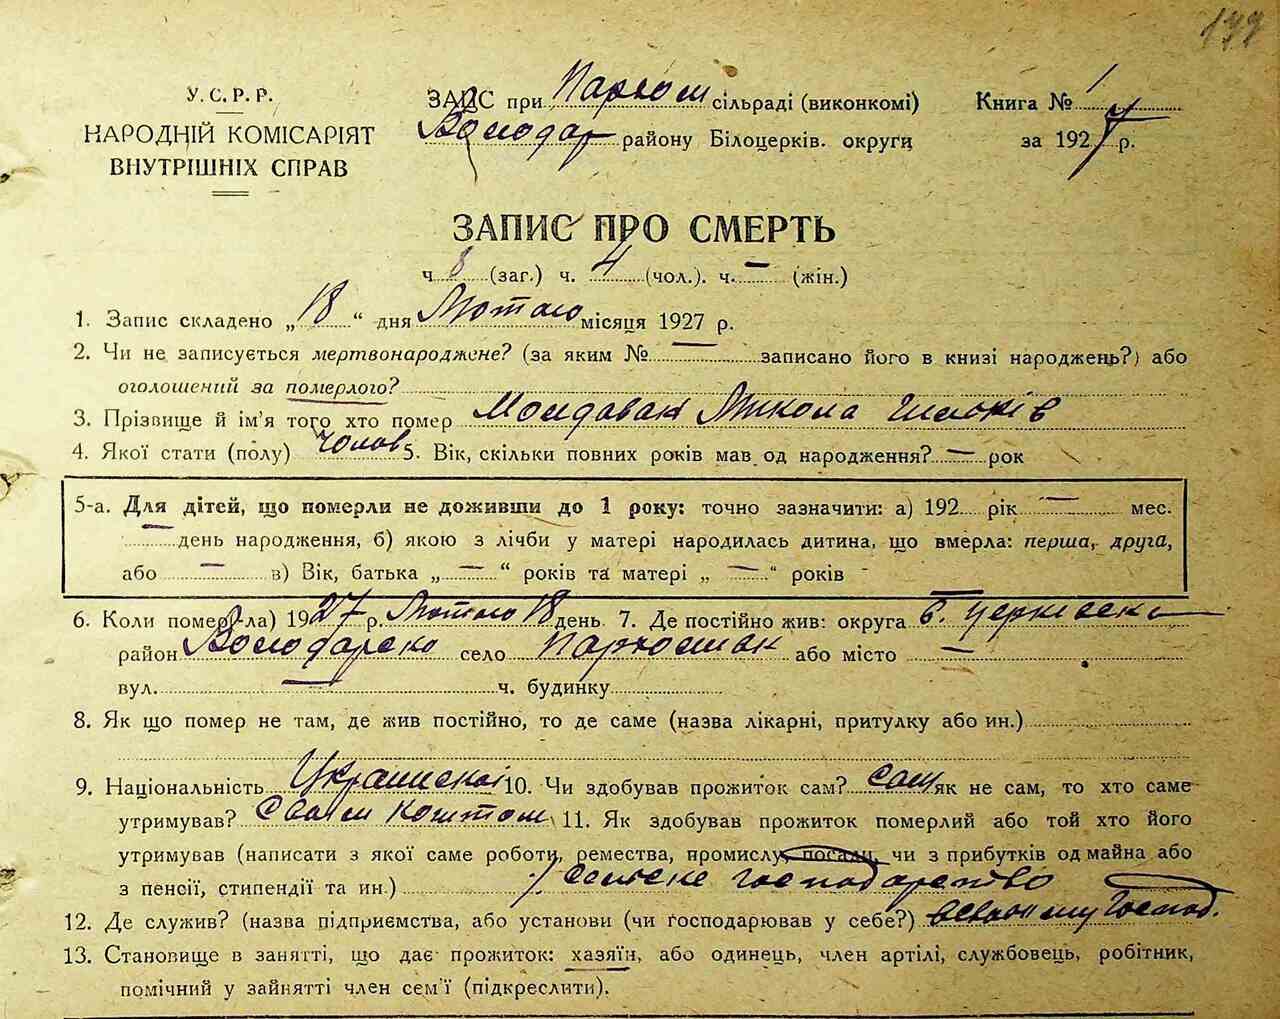 У. С. Р. Р.
НАРОДНІЙ КОМІСАРІЯТ
ВНУТРІШНІХ СПРАВ
ЗАПИС при Пархом сільраді (виконкомі)
Володар району Білоцерків. округи
Книга № 1
за 1927 р.
ЗАПИС ПРО СМЕРТЬ
ч 8 (заг.) ч. 4 (чол.). ч. — (жін.)
1. Запис складено „18“ дня Лютого місяця 1927 р.
2. Чи не записується мертвонароджене? (за яким № — записано його в книзі народжень?) або
оголошений за померлого?
3. Прізвище й ім'я того хто помер Молдован Микола
4. Якої стати (полу) чолов 5. Вік, скільки повних років мав од народження? — рок
5-а. Для дітей, що померли не доживши до 1 року: точно зазначити: а) 192 рік — мес.
— день народження, б) якою з лічби у матері народилась дитина, що вмерла: перша, друга,
або — в) Вік, батька „—“ років та матері „—“ років
6. Коли помер(ла) 1927 р. Лютого 18 день 7. Де постійно жив: округа Б. Церківська
район Володарсько село Пархомівк або місто —
вул. — ч. будинку
8. Як що помер не там, де жив постійно, то де саме (назва лікарні, притулку або ин.)
9. Національність Украинскої 10. Чи здобував прожиток сам? Сам як не сам, то хто саме
утримував? Своім коштом 11. Як здобував прожиток померлий або той хто його
утримував (написати з якої саме роботи, ремества, промислу, посади, чи з прибутків од майна або
з пенсії, стипендії та ин.) сельске господарство
12. Де служив? (назва підприємства, або установи (чи господарював у себе?) в своему господ.
13. Становище в занятті, що дає прожиток: хазяїн, або одинець, член артілі, службовець, робітник,
помічний у зайнятті член сем'ї (підкреслити).